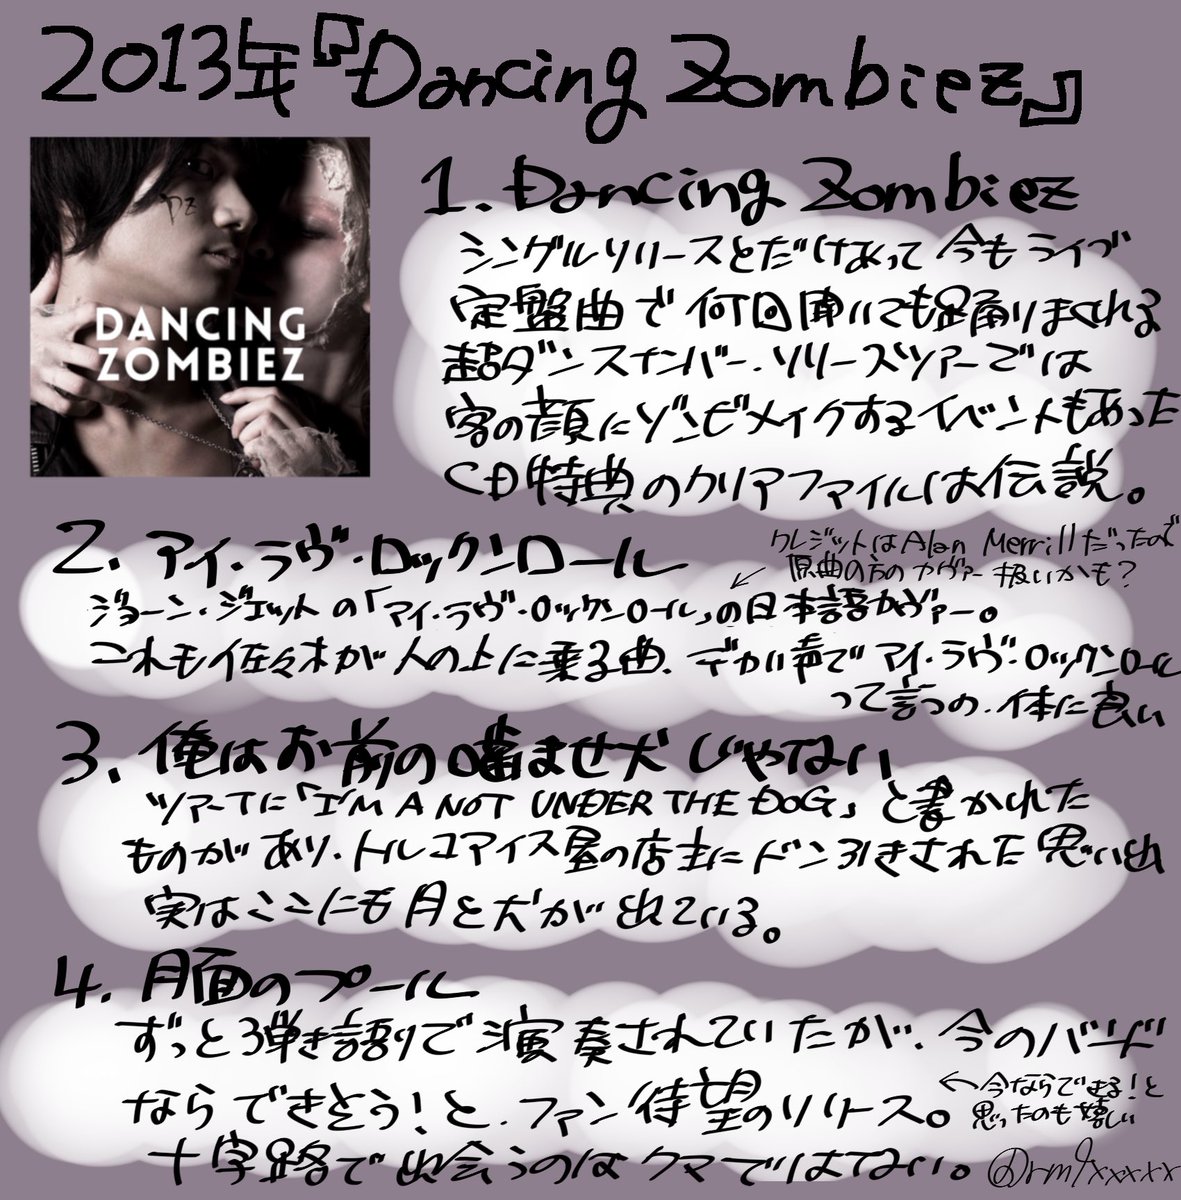 2013年『Dancing Zombiez』
DANCING
ZOMBIEZ
1. Dancing Zombiez
シングルリリースとだけあって今もライブ
定盤曲で何回聞いても踊りまくれる
超ダンスナンバー.リリースツアーでは
客の顔にゾンビメイクするイベントもあった
CD特典のクリアファイルは伝説。
2. アイ・ラヴ・ロックンロール
クレジットはAlan Merrillだったので
原曲の方のカヴァー扱いかも?
ジョーン・ジェットの「アイ・ラヴ・ロックンロール」の日本語カヴァー。
これも佐々木が人の上に乗る曲、デカい声でアイ・ラヴ・ロックンロール
って言うの、体に良い
3. 俺はお前の噛ませ犬じゃない
ツアーTに「I'M A NOT UNDER THE DOG」と書かれた
ものがあり、トルコアイス屋の店主にドン引きされた思い出
実はここにも月と犬が出ている。
4. 月面のプール
ずっと弾き語りで演奏されていたが、今のバンド
ならできそう!と、ファン待望のリリース。
←今ならできる!と
思ったのも嬉しい
十字路で出会うのはクマではない。
@rm9xxxxx